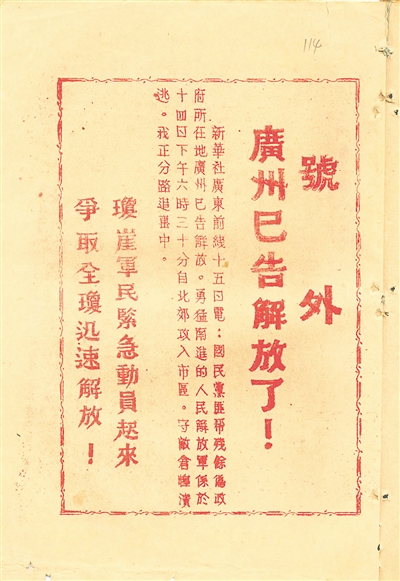 114
號外
廣州已告解放了！
新華社廣東前綫十五日電：國民黨匪帮残餘僞政
府所在地廣州已告解放。勇猛南進的人民解放軍係於
十四日下午六時三十分自北郊攻入市區。守敵倉惶潰
逃。我正分路追擊中。
瓊崖軍民緊急動員起來
爭取全瓊迅速解放！